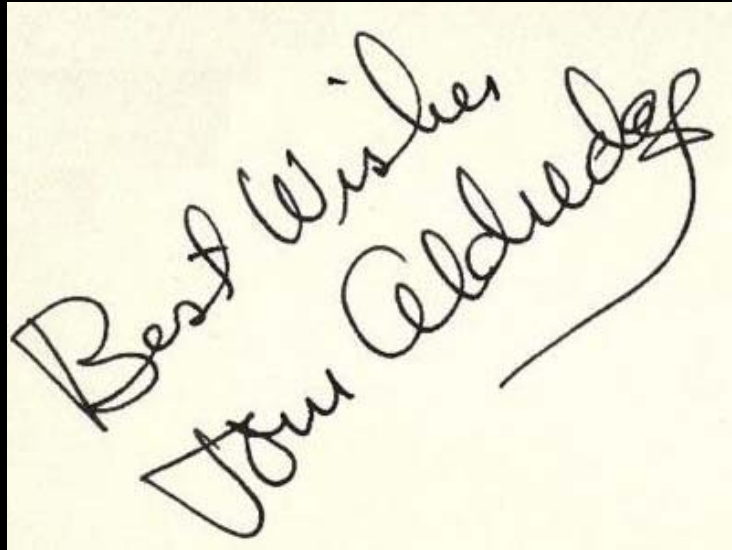 Best Wishes
Tom Aldredge